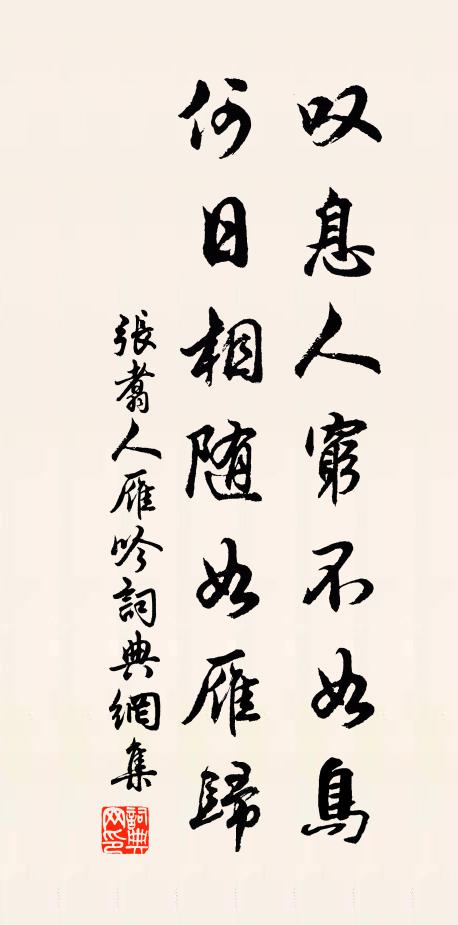 叹息人窮不如鳥
何日相随如雁歸
張翥人雁吟詞典網集
詞典网印